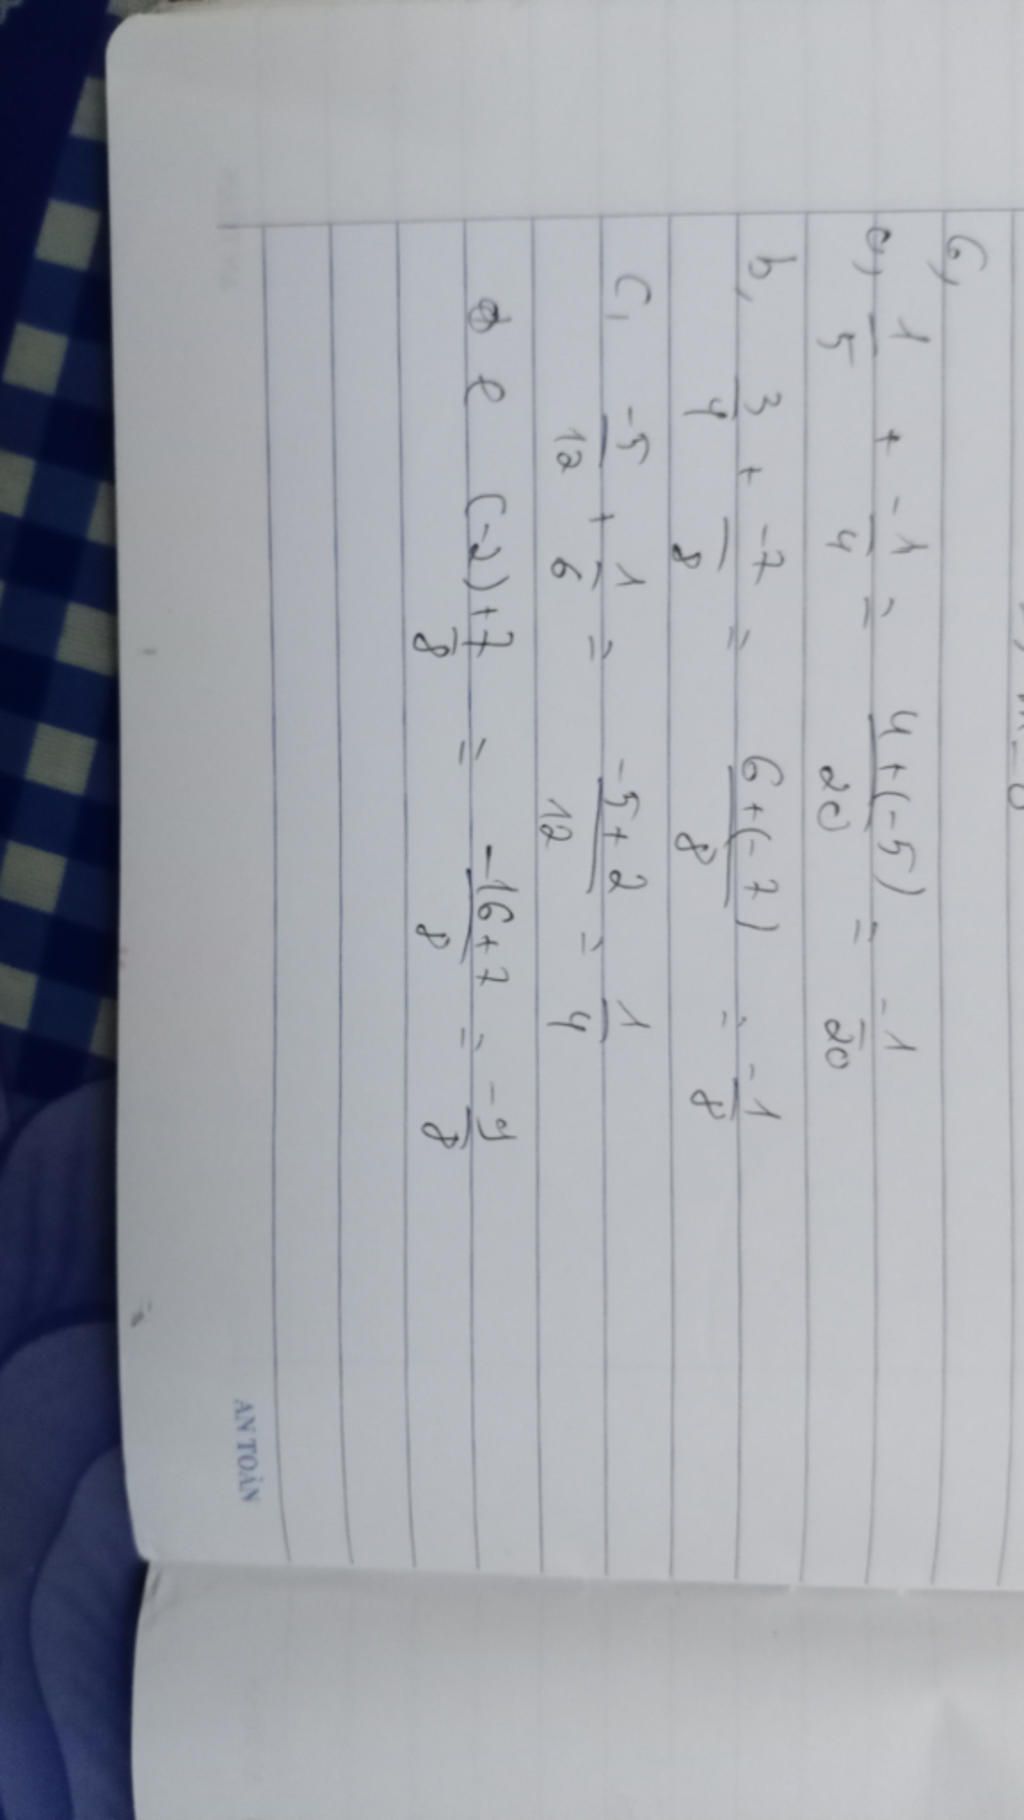 6,
a, 1/5 + -1/4 = 4+(-5)/20 = -1/20
b, 3/4 + -7/8 = 6+(-7)/8 = -1/8
C, -5/12 + 1/6 = -5+2/12 = 1/4
e (-2)+7/8 = -16+7/8 = -9/8
AN TOÀN